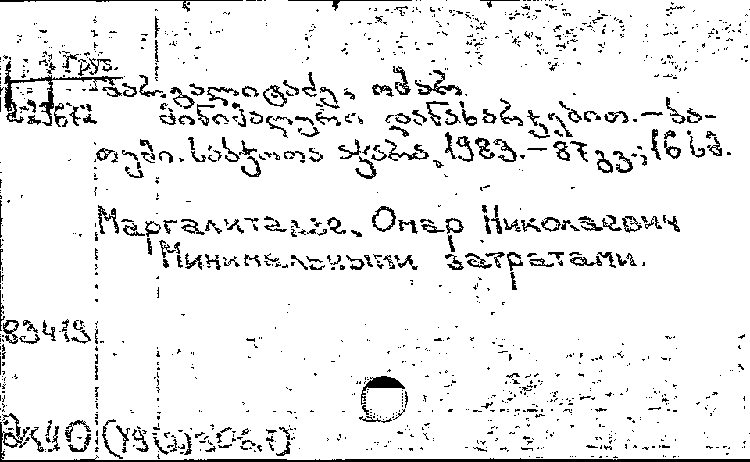 Груз.
მარგალიტაძე, ომარ
მინიმალური დანახარჯებით. — ბა-
თუმი. საბჭოთა აჭარა, 1983. — 87 გვ.; 16 სმ.
Маргалитадзе, Омар Николаевич
Минимальными затратами.
83419